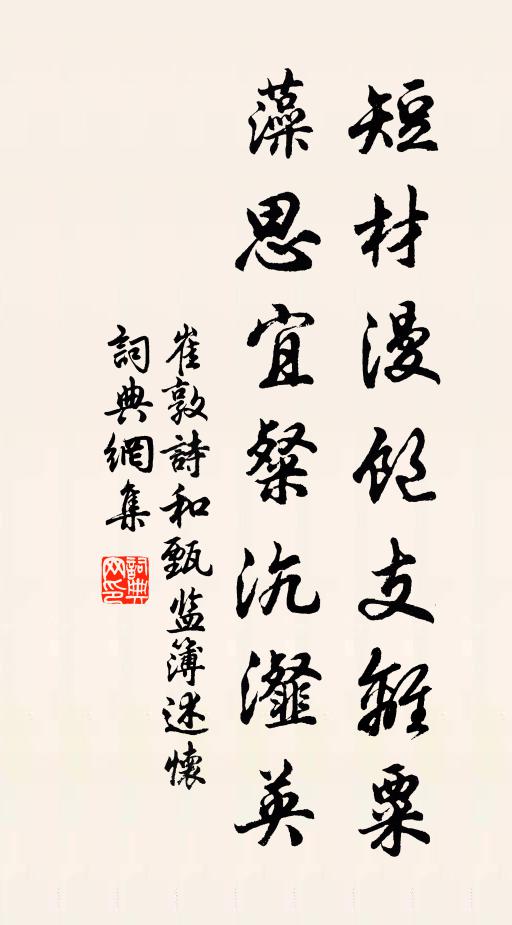 短材漫飽支離粟
藻思宜餐沆瀣英
崔敦詩和甄监簿述懷
詞典網集
詞典网印